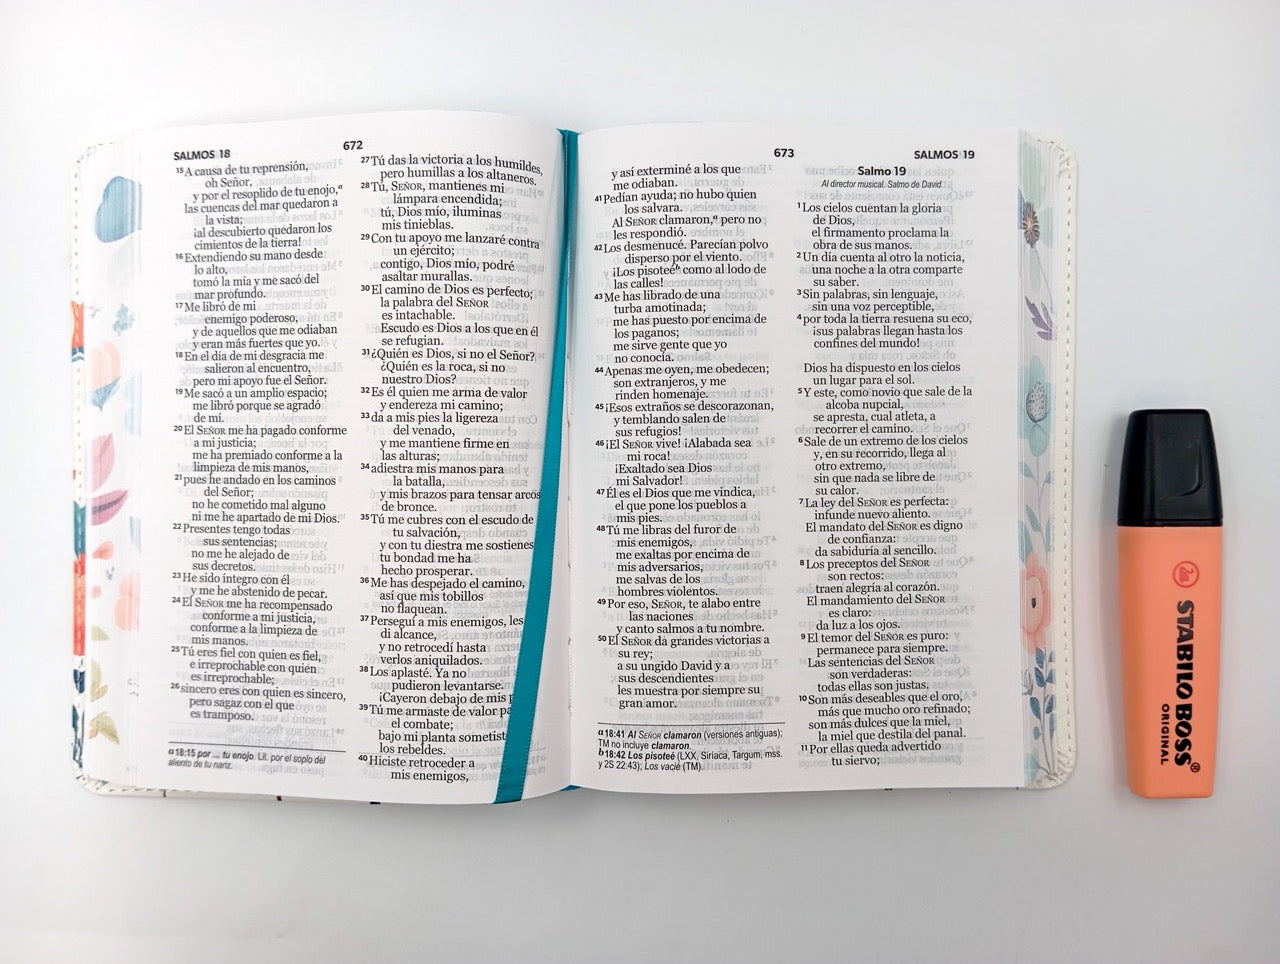 SALMOS 18
672
15 A causa de tu reprensión,
oh Señor,
y por el resoplido de tu enojo,a
las cuencas del mar quedaron a
la vista;
¡al descubierto quedaron los
cimientos de la tierra!
16 Extendiendo su mano desde
lo alto,
tomó la mía y me sacó del
mar profundo.
17 Me libró de mi
enemigo poderoso,
y de aquellos que me odiaban
y eran más fuertes que yo.
18 En el día de mi desgracia me
salieron al encuentro,
pero mi apoyo fue el Señor.
19 Me sacó a un amplio espacio;
me libró porque se agradó
de mí.
20 El Señor me ha pagado conforme
a mi justicia;
me ha premiado conforme a la
limpieza de mis manos,
21 pues he andado en los caminos
del Señor;
no he cometido mal alguno
ni me he apartado de mi Dios.
22 Presentes tengo todas
sus sentencias;
no me he alejado de
sus decretos.
23 He sido íntegro con él
y me he abstenido de pecar.
24 El Señor me ha recompensado
conforme a mi justicia,
conforme a la limpieza de
mis manos.
25 Tú eres fiel con quien es fiel,
e irreprochable con quien
es irreprochable;
26 sincero eres con quien es sincero,
pero sagaz con el que
es tramposo.
a 18:15 por ... tu enojo. Lit. por el soplo del
aliento de tu nariz.
27 Tú das la victoria a los humildes,
pero humillas a los altaneros.
28 Tú, Señor, mantienes mi
lámpara encendida;
tú, Dios mío, iluminas
mis tinieblas.
29 Con tu apoyo me lanzaré contra
un ejército;
contigo, Dios mío, podré
asaltar murallas.
30 El camino de Dios es perfecto;
la palabra del Señor
es intachable.
Escudo es Dios a los que en él
se refugian.
31 ¿Quién es Dios, si no el Señor?
¿Quién es la roca, si no
nuestro Dios?
32 Es él quien me arma de valor
y endereza mi camino;
33 da a mis pies la ligereza
del venado,
y me mantiene firme en
las alturas;
34 adiestra mis manos para
la batalla,
y mis brazos para tensar arcos
de bronce.
35 Tú me cubres con el escudo de
tu salvación,
y con tu diestra me sostienes;
tu bondad me ha
hecho prosperar.
36 Me has despejado el camino,
así que mis tobillos
no flaquean.
37 Perseguí a mis enemigos, les
di alcance,
y no retrocedí hasta
verlos aniquilados.
38 Los aplasté. Ya no
pudieron levantarse.
¡Cayeron debajo de mis p
39 Tú me armaste de valor pa
el combate;
bajo mi planta sometist
los rebeldes.
40 Hiciste retroceder a
mis enemigos,
673
SALMOS 19
y así exterminé a los que
me odiaban.
41 Pedían ayuda; no hubo quien
los salvara.
Al Señor clamaron,a pero no
les respondió.
42 Los desmenucé. Parecían polvo
disperso por el viento.
¡Los pisoteéb como al lodo de
las calles!
43 Me has librado de una
turba amotinada;
me has puesto por encima de
los paganos;
me sirve gente que yo
no conocía.
44 Apenas me oyen, me obedecen;
son extranjeros, y me
rinden homenaje.
45 ¡Esos extraños se descorazonan,
y temblando salen de
sus refugios!
46 ¡El Señor vive! ¡Alabada sea
mi roca!
¡Exaltado sea Dios
mi Salvador!
47 Él es el Dios que me vindica,
el que pone los pueblos a
mis pies.
48 Tú me libras del furor de
mis enemigos,
me exaltas por encima de
mis adversarios,
me salvas de los
hombres violentos.
49 Por eso, Señor, te alabo entre
las naciones
y canto salmos a tu nombre.
50 El Señor da grandes victorias a
su rey;
a su ungido David y a
sus descendientes
les muestra por siempre su
gran amor.
a 18:41 Al Señor clamaron (versiones antiguas);
TM no incluye clamaron.
b 18:42 Los pisoteé (LXX, Siríaca, Targum, mss.
y 2S 22:43); Los vacié (TM).
Salmo 19
Al director musical. Salmo de David.
1 Los cielos cuentan la gloria
de Dios,
el firmamento proclama la
obra de sus manos.
2 Un día cuenta al otro la noticia,
una noche a la otra comparte
su saber.
3 Sin palabras, sin lenguaje,
sin una voz perceptible,
4 por toda la tierra resuena su eco,
¡sus palabras llegan hasta los
confines del mundo!
Dios ha dispuesto en los cielos
un lugar para el sol.
5 Y este, como novio que sale de la
alcoba nupcial,
se apresta, cual atleta, a
recorrer el camino.
6 Sale de un extremo de los cielos
y, en su recorrido, llega al
otro extremo,
sin que nada se libre de
su calor.
7 La ley del Señor es perfecta:
infunde nuevo aliento.
El mandato del Señor es digno
de confianza:
da sabiduría al sencillo.
8 Los preceptos del Señor
son rectos:
traen alegría al corazón.
El mandamiento del Señor
es claro:
da luz a los ojos.
9 El temor del Señor es puro:
permanece para siempre.
Las sentencias del Señor
son verdaderas:
todas ellas son justas.
10 Son más deseables que el oro,
más que mucho oro refinado;
son más dulces que la miel,
la miel que destila del panal.
11 Por ellas queda advertido
tu siervo;
STABILO BOSS®
ORIGINAL